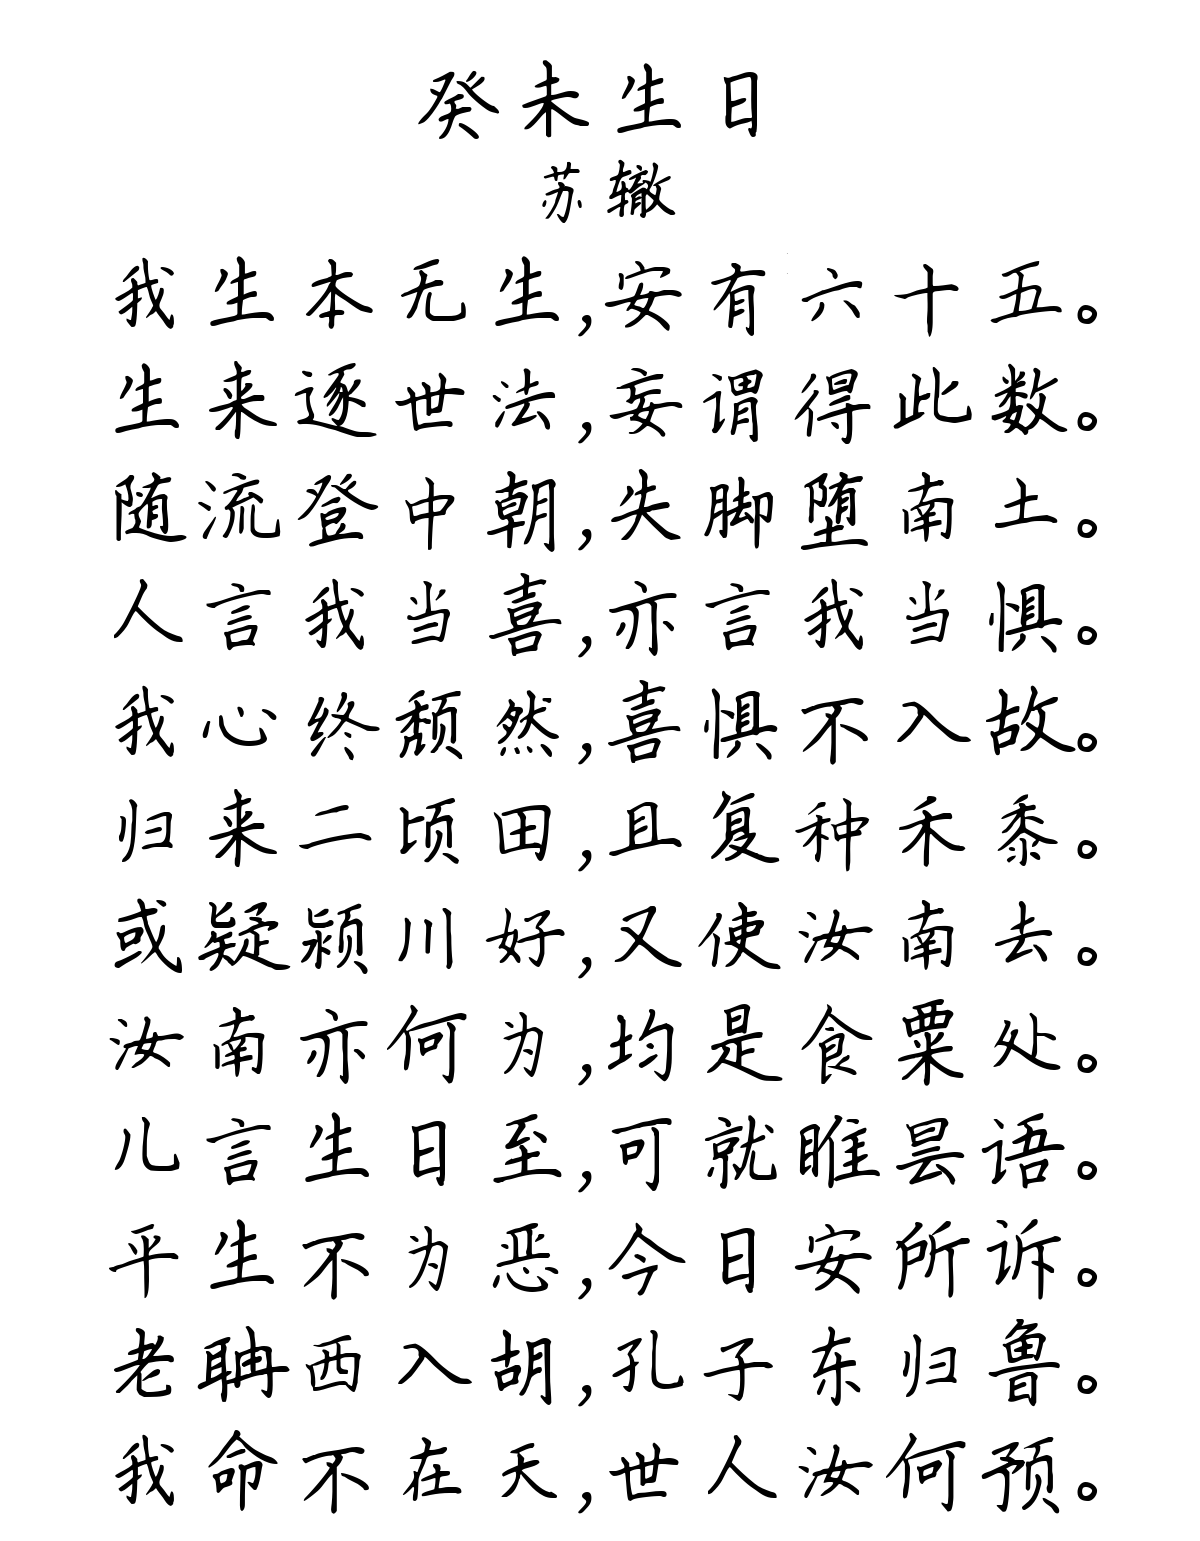 癸未生日
苏辙
我生本无生,安有六十五。
生来逐世法,妄谓得此数。
随流登中朝,失脚堕南土。
人言我当喜,亦言我当惧。
我心终颓然,喜惧不入故。
归来二顷田,且复种禾黍。
或疑颍川好,又使汝南去。
汝南亦何为,均是食粟处。
儿言生日至,可就睢昙语。
平生不为恶,今日安所诉。
老聃西入胡,孔子东归鲁。
我命不在天,世人汝何预。